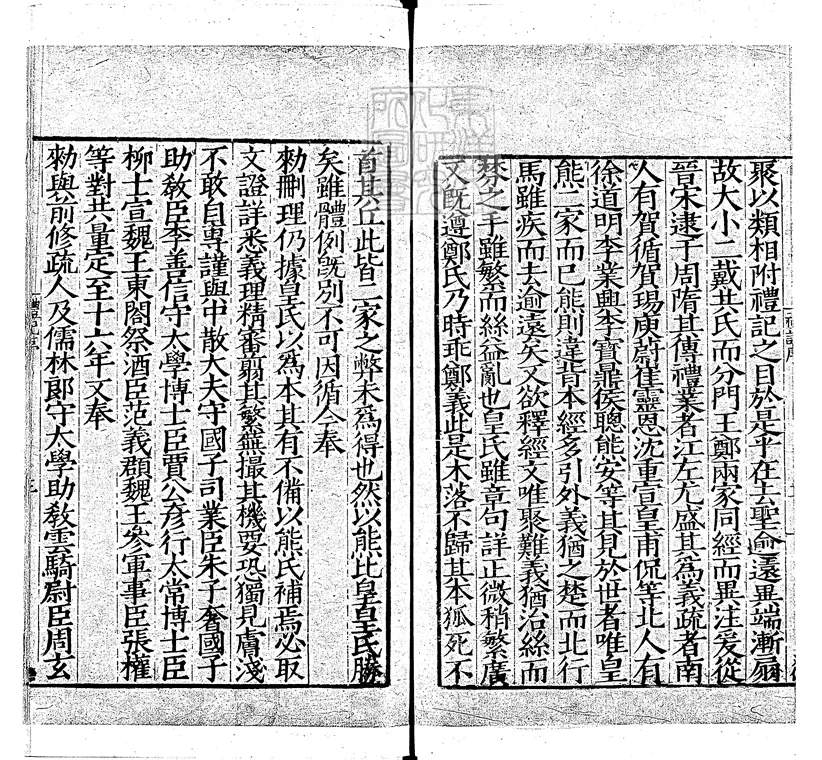 聚以類相附禮記之目於是乎在去聖逾遠異端漸扇
故大小二戴共氏而分門王鄭兩家同經而異注爰從
晉宋逮于周隋其傳禮業者江左尤盛其為義疏者南
人有賀循賀瑒庾蔚崔靈恩沈重宣皇甫侃等北人有
徐道明李業興李寶鼎侯聰熊安等其見於世者唯皇
熊二家而已熊則違背本經多引外義猶之楚而北行
馬雖疾而去逾遠矣又欲釋經文唯聚難義猶治絲而
棼之手雖繁而絲益亂也皇氏雖章句詳正微稍繁廣
又既遵鄭氏乃時乖鄭義此是木落不歸其本狐死不
首其丘此皆二家之弊未為得也然以熊比皇皇氏勝
矣雖體例既別不可因循今奉
勑刪理仍據皇氏以為本其有不備以熊氏補焉必取
文證詳悉義理精審翦其繁蕪撮其機要恐獨見膚淺
不敢自專謹與中散大夫守國子司業臣朱子奢國子
助教臣李善信守太學博士臣賈公彥行太常博士臣
柳士宣魏王東閤祭酒臣范義頵魏王參軍事臣張權
等對共量定至十六年又奉
勑與前修疏人及儒林郎守太學助教雲騎尉臣周玄